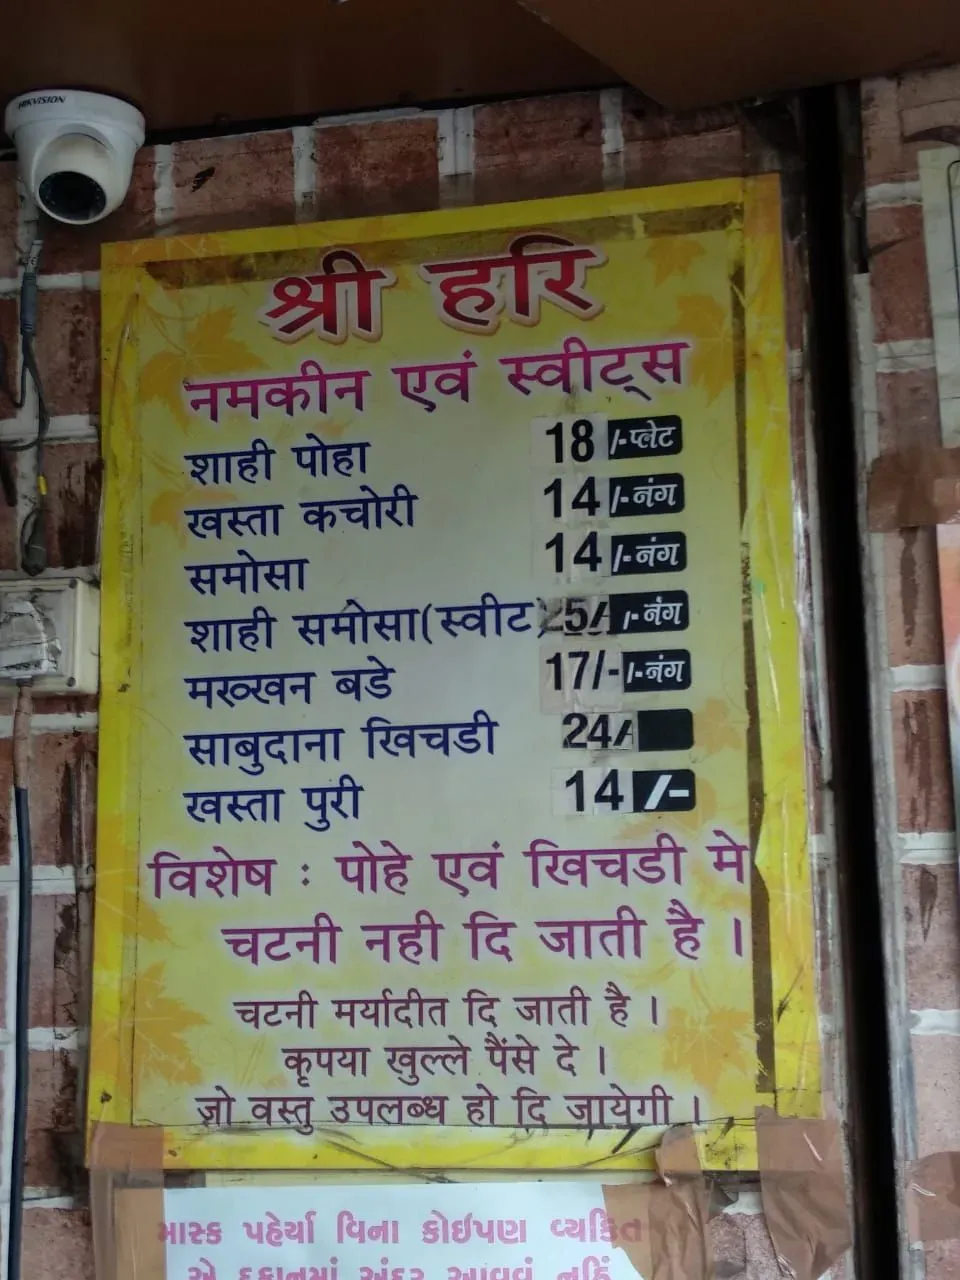 HIKVISION
श्री हरि
नमकीन एवं स्वीट्स
शाही पोहा 18/-प्लेट
खस्ता कचोरी 14/-नंग
समोसा 14/-नंग
शाही समोसा(स्वीट) 25/- /-नंग
मख्खन बडे 17/- /-नंग
साबुदाना खिचडी 24/-
खस्ता पुरी 14/-
विशेष : पोहे एवं खिचडी मे
चटनी नही दि जाती है ।
चटनी मर्यादीत दि जाती है ।
कृपया खुल्ले पैंसे दे ।
जो वस्तु उपलब्ध हो दि जायेगी ।
માસ્ક પહેર્યા વિના કોઈપણ વ્યકિત
એ દુકાનમાં અંદર આવવું નહિં